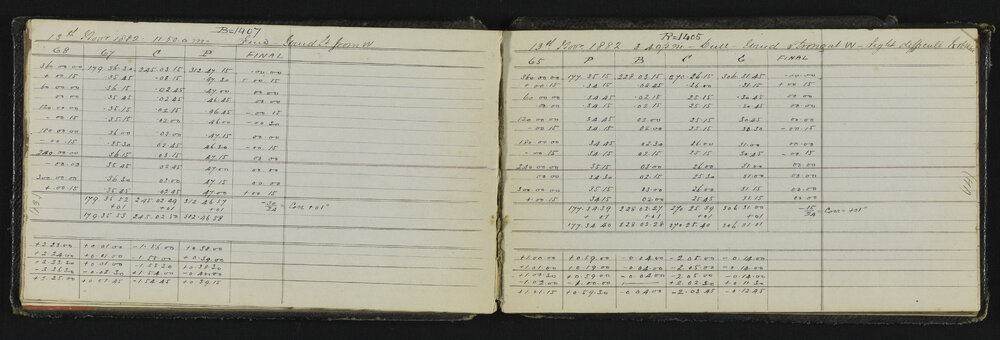 B=1407
13th Novr 1882 11.50 a.m. Fine - Wind from W
68 67 C P FINAL
360.00.00 179.36.30 245.03.15 312.47.15 .00.00
+00.15 .35.45 .03.15 47.30 00.15
60.00.00 36.15 .02.45 47.00 00.00
00.00 35.45 02.45 .46.45 00.00
120.00.00 .35.15 02.15 .46.45 -00.15
-00.15 35.15 02.00 46.00 -00.30
180.00.00 36.00 .03.00 47.15 00.00
-00.15 .35.30 02.45 46.30 -00.15
240.00.00 36.15 .03.15 47.15 00.00
-00.00 35.45 02.45 47.00 00.00
300.00.00 36.30 03.00 47.15 00.00
+00.15 35.45 02.45 47.00 +00.15
179.35.52 245.02.49 312.46.57 -30/24 = Corr +01"
+01 +01 +01
179.35.53 245.02.50 312.46.58
13
+2.23.00 +0.01.00 -1.56.00 +0.38.00
+2.24.00 +0.01.00 -1.55.00 +0.39.00
+2.23.30 +0.01.00 -1.53.30 +0.38.30
-0.02.30 +1.54.00 -0.40.00
-1.54.45 +0.39.15
R=1405
13th Novr 1882 3.40 p.m. Dull - Wind Strong at W - Light difficult
65 P B C G FINAL
360.00.00 177.35.15 228.03.15 270.26.15 306.31.45 .00.00
+00.15 .34.15 02.45 .26.00 31.15 +00.15
60.00.00 .34.45 02.45 25.15 .30.45 00.00
00.00 .34.15 02.15 25.15 30.45 00.00
120.00.00 34.45 03.00 25.15 30.45 00.00
-00.15 34.15 02.00 25.15 30.30 -00.15
180.00.00 34.45 02.30 26.00 31.00 00.00
-00.15 34.15 02.15 25.15 30.45 -00.15
240.00.00 35.15 03.00 26.00 31.00 00.00
00.00 34.30 02.15 25.30 31.00 00.00
300.00.00 35.15 03.00 26.00 31.15 00.00
+00.15 34.15 02.00 25.45 31.15 00.00
177.34.39 228.02.27 270.25.39 306.31.00 -15/24 = Corr = +01"
+01 +01 +01 +01
177.34.40 228.02.28 270.25.40 306.31.01
+1.00.00 +0.59.00 -0.04.00 -2.05.00 -0.14.00
+1.01.00 -0.04.00 -2.05.00 -0.14.00
+0.59.00 -0.04.00 -2.04.00 -0.14.00
-1.02.00 -1.00.00 +2.02.30
+1.01.15 +0.59.30 -0.04.00 -2.03.45 -0.12.45